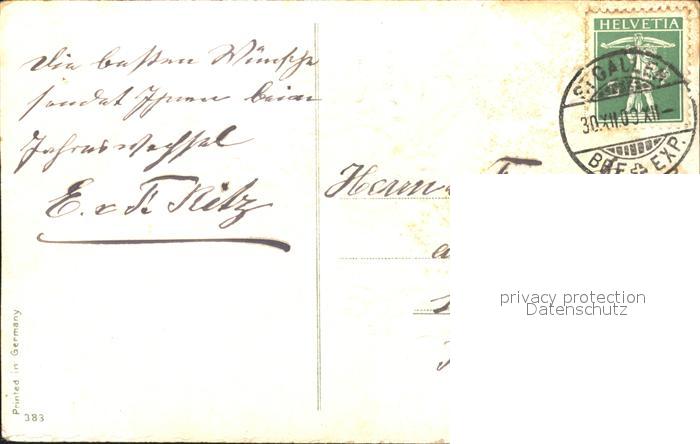 Die besten Wünsche
sendet Ihnen beim
Jahreswechsel
E. & F. Kitz
HELVETIA
ST. GALLEN
30.XII.09.XII–
BRF. EXP.
Herrn
Printed in Germany
383
privacy protection
Datenschutz